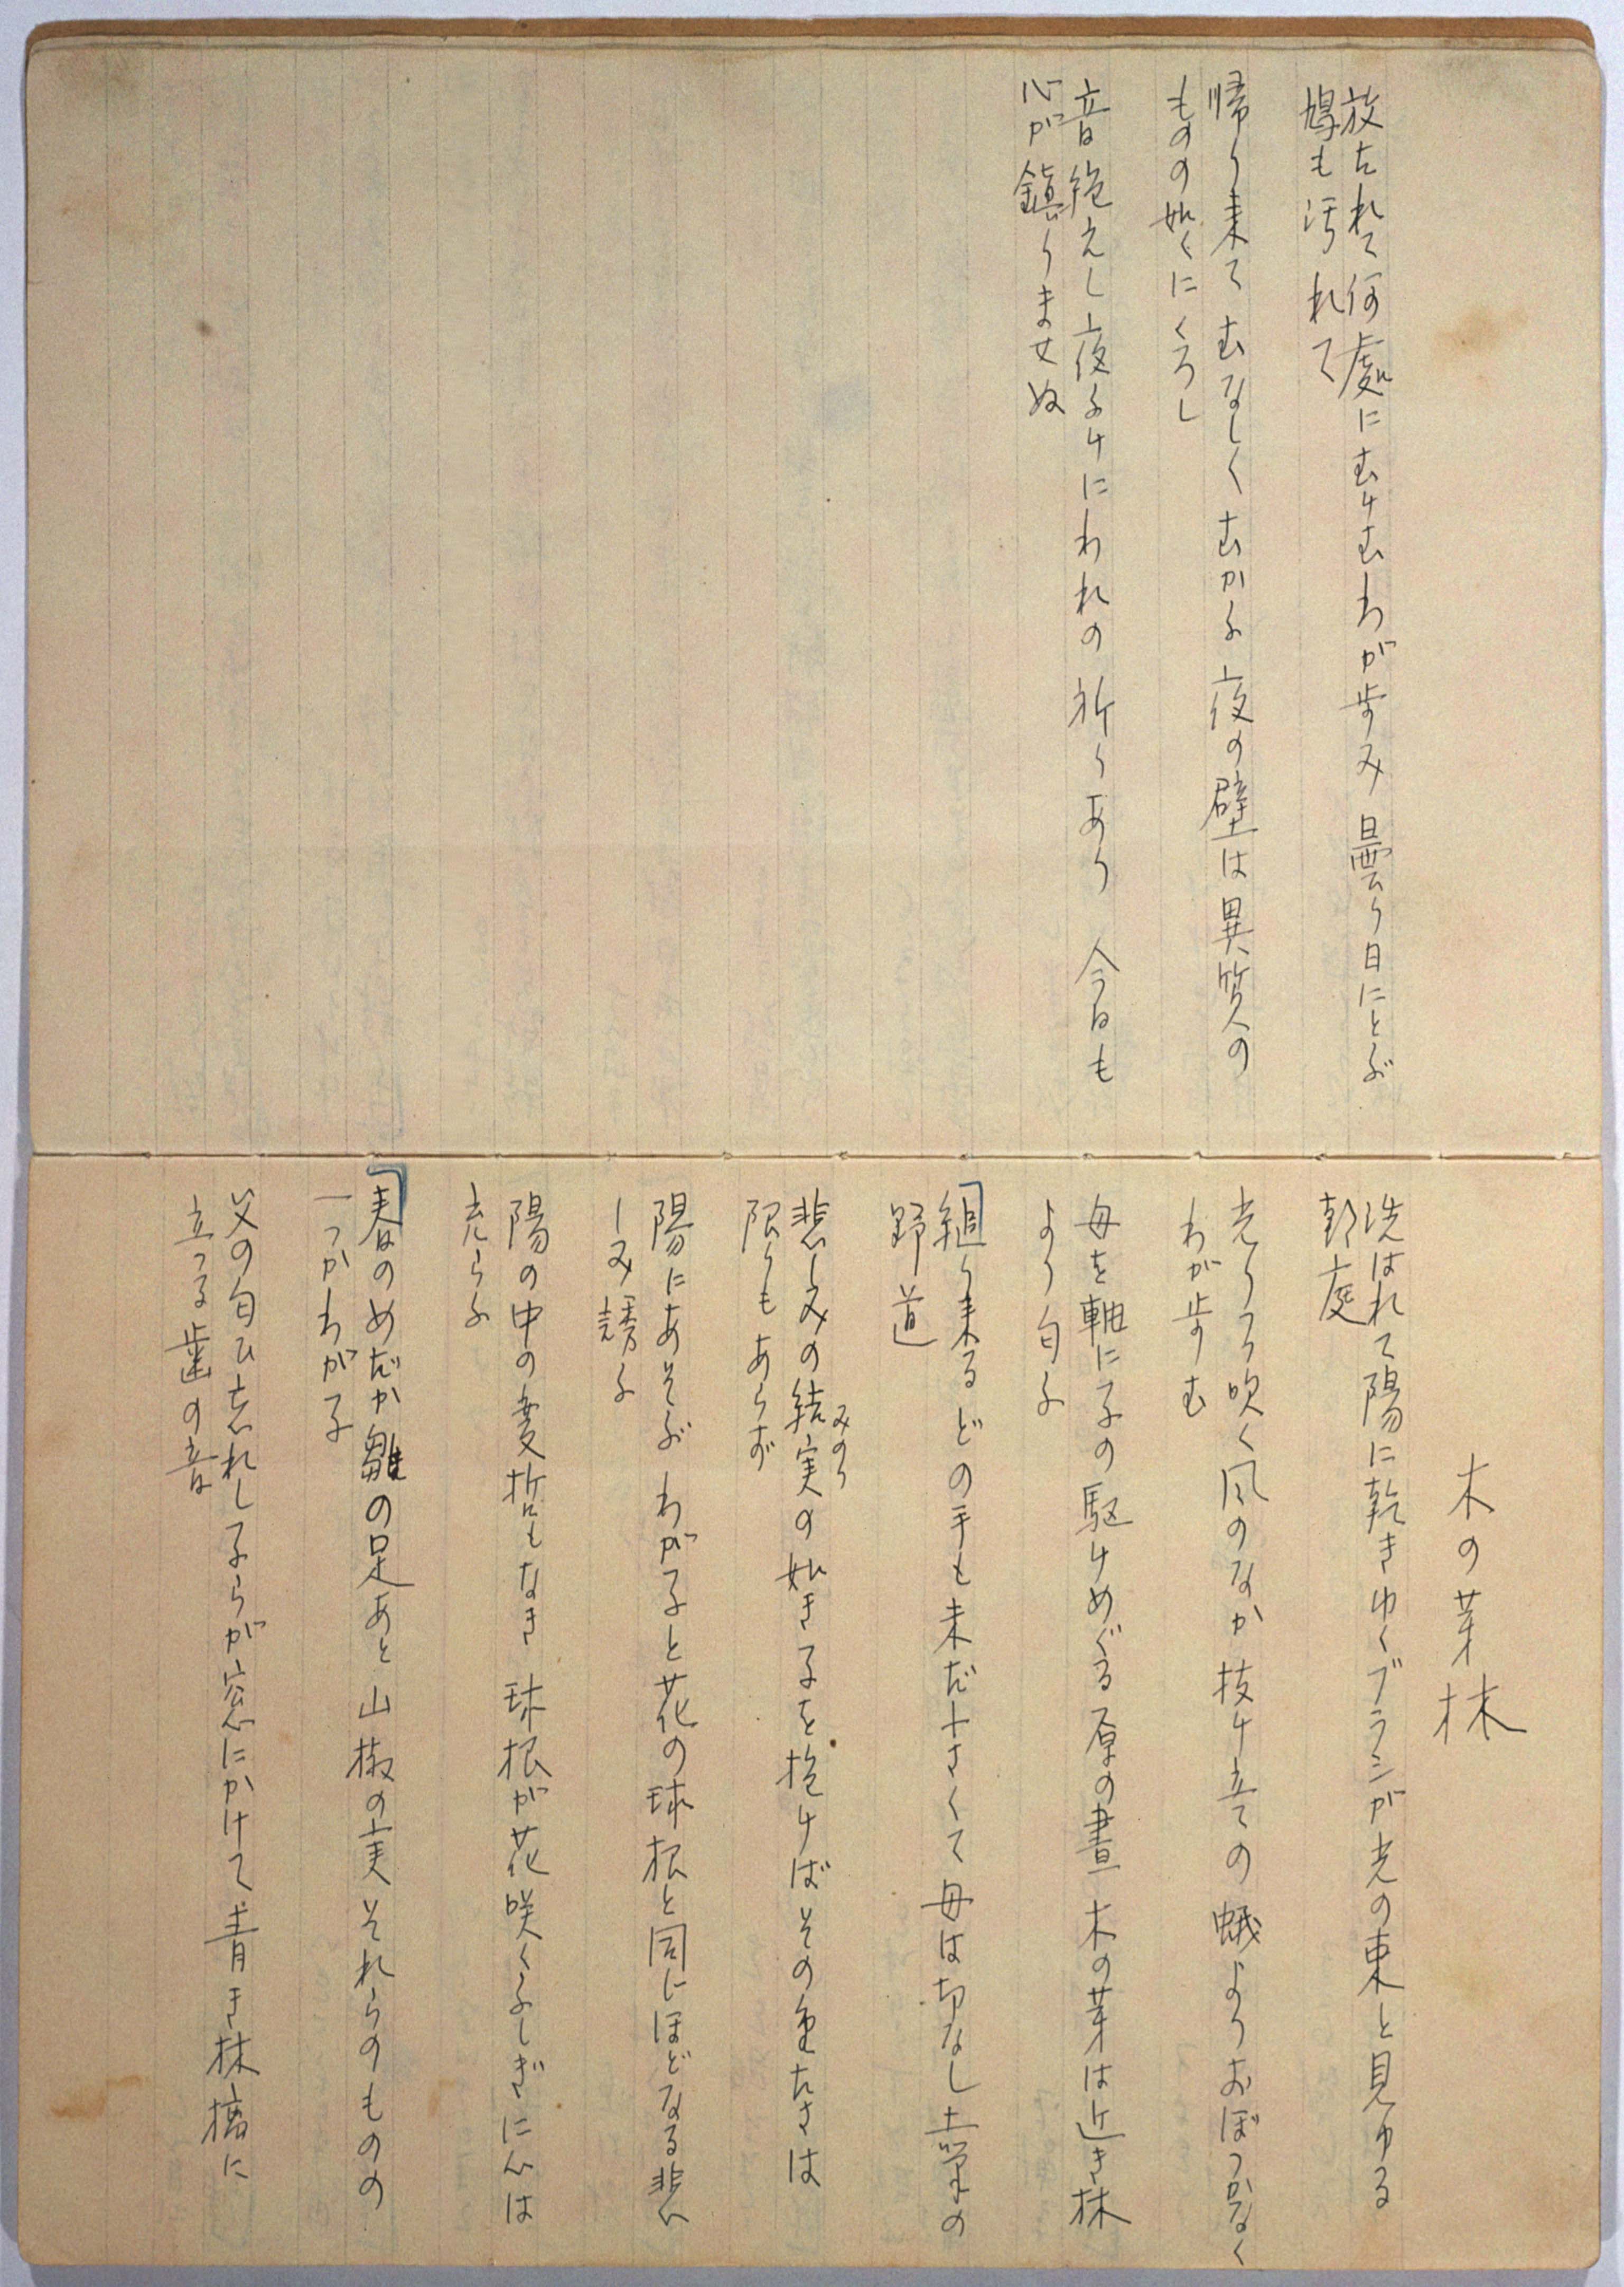 放たれて何處にむけむわが歩み 曇り日にとぶ
鳩も汚れて
帰り来て むなしく むかふ 夜の壁は異質の
ものの如くにくろし
音絶えし夜ふけにわれの祈りあり 今日も
心が鎮りませぬ
木の芽林
洗はれて陽に乾きゆくブラシが光の束と見ゆる
朝庭
光りつつ吹く風のなか 枝け立ての蛾よりおぼつかなく
わが歩む
母を軸に子の駆けめぐる原の晝 木の芽は近き林
より匂ふ
縋り来るどの手も未だ小さくて 母は切なし土筆の
野道
悲しみの結実の如き子を抱けばその重たさは
みのり
限りもあらず
陽にあそぶ わが子と花の球根と同じほどなる悲
しみ誘ふ
陽の中の変哲もなき 球根が花咲くふしぎに心は
充らふ
春のめだか雛の足あと 山椒の実 それらのものの
一つかわが子
父の匂ひ忘れし子らが窓にかけて青き林檎に
立つる歯の音